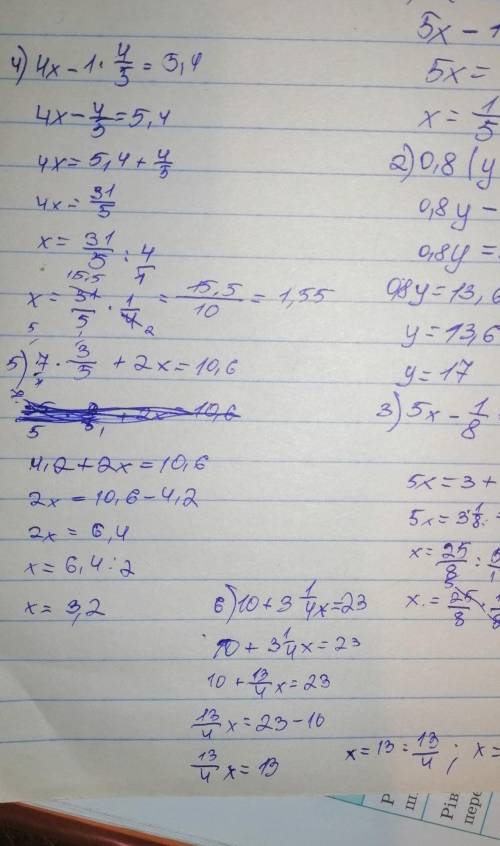 4) 4x - 1 · 4/5 = 5,4
4x - 4/5 = 5,4
4x = 5,4 + 4/5
4x = 31/5
x = 31/5 : 4/1
x = 31/5 · 1/4 = 15,5/10 = 1,55
5) 7 · 3/5 + 2x = 10,6
4,2 + 2x = 10,6
2x = 10,6 - 4,2
2x = 6,4
x = 6,4 : 2
x = 3,2
6) 10 + 3 1/4 x = 23
10 + 3 1/4 x = 23
10 + 13/4 x = 23
13/4 x = 23 - 10
13/4 x = 13
x = 13 : 13/4 ; x =
5x - 1
5x =
x = 1/5
2) 0,8 (y
0,8y -
0,8y =
0,8y = 13,6
y = 13,6
y = 17
3) 5x - 1/8
5x = 3 +
5x = 3 1/8
x = 25/8 : 5/1
x = 25/8 ·
Рів
пере